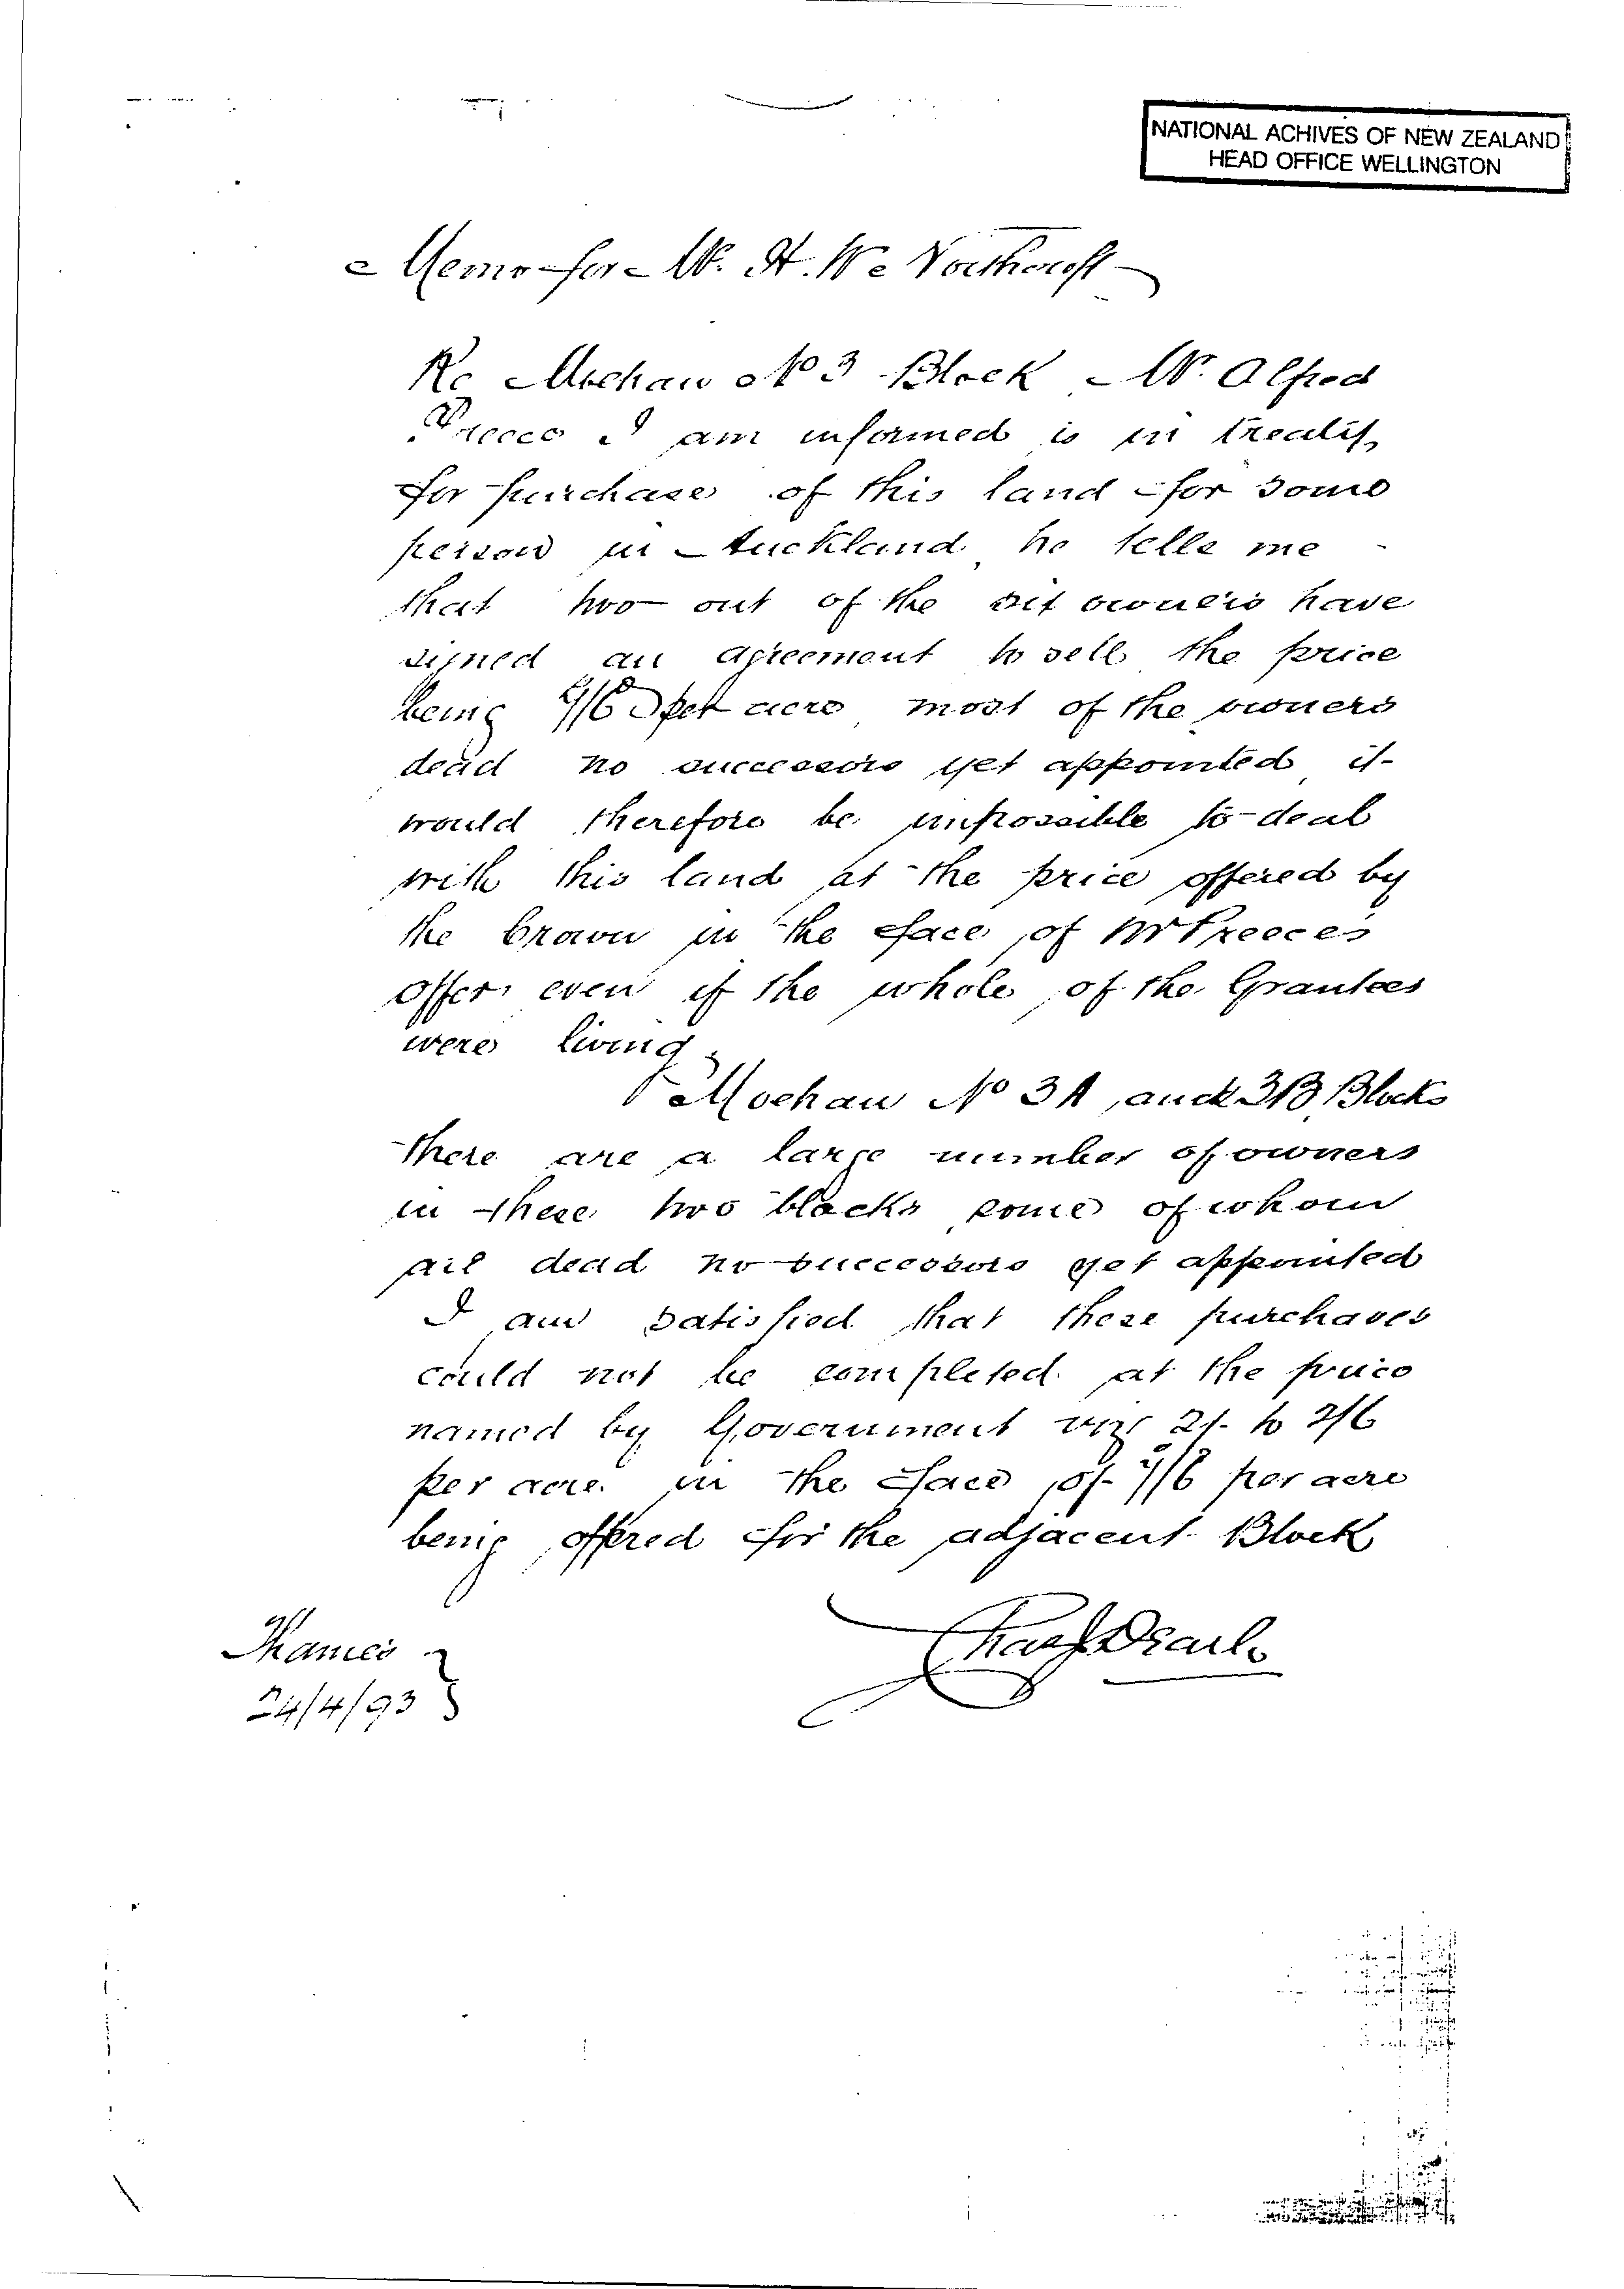 NATIONAL ACHIVES OF NEW ZEALAND
HEAD OFFICE WELLINGTON
Memo for Mr. H. W. Northcroft
Re Moehau No 3 Block Mr. Alfred
Preece I am informed is in treaty
for purchase of this land for some
person in Auckland he tells me
that two out of the six owners have
signed an agreement to sell the price
being per acre most of the owners
dead no successors yet appointed it
would therefore be impossible to deal
with this land at the price offered by
the Crown in the face of Mr Preeces
offer even if the whole of the Grantees
were living
Moehau No 3A and 3B Blocks
there are a large number of owners
in these two blocks some of whom
are dead no successors yet appointed
I am satisfied that these purchases
could not be completed at the price
named by Government viz 2/- to 2/6
per acre in the face of per acre
being offered for the adjacent Block
Thames
24/4/93